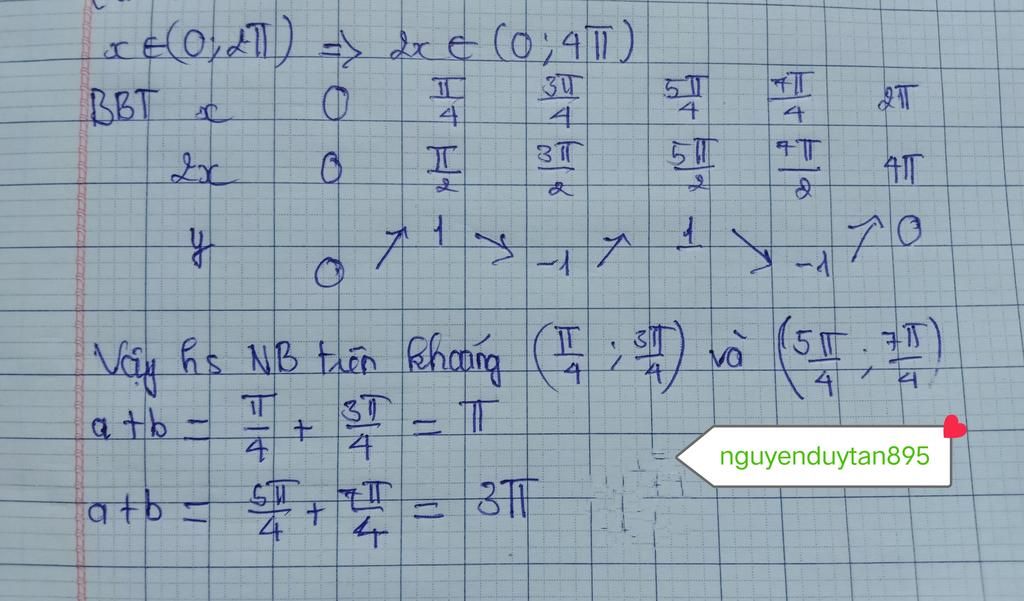 x ∈ (0; 2π) => 2x ∈ (0; 4π)
BBT x 0 π/4 3π/4 5π/4 7π/4 2π
2x 0 π/2 3π/2 5π/2 7π/2 4π
y 0 ↗ 1 ↘ -1 ↗ 1 ↘ -1 ↗ 0
Vậy hs NB trên khoảng (π/4; 3π/4) và (5π/4; 7π/4)
a+b = π/4 + 3π/4 = π
nguyenduytan895
a+b = 5π/4 + 7π/4 = 3π